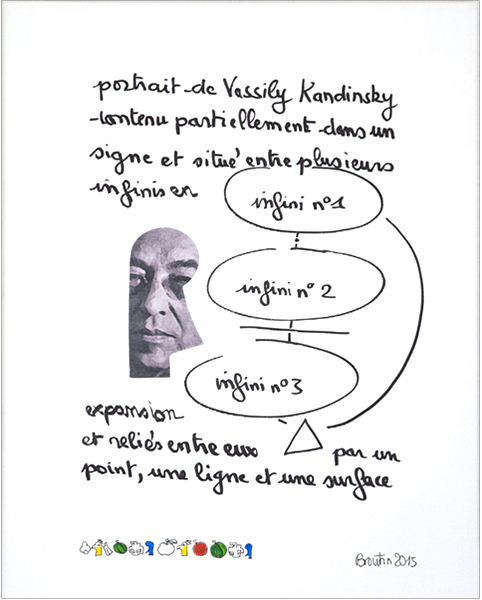 portrait de Vassily Kandinsky
contenu partiellement dans un
signe et situé entre plusieurs
infinis en
infini n°1
infini n° 2
infini n°3
expansion
et reliés entre eux
par un
point, une ligne et une surface
Broutin 2015